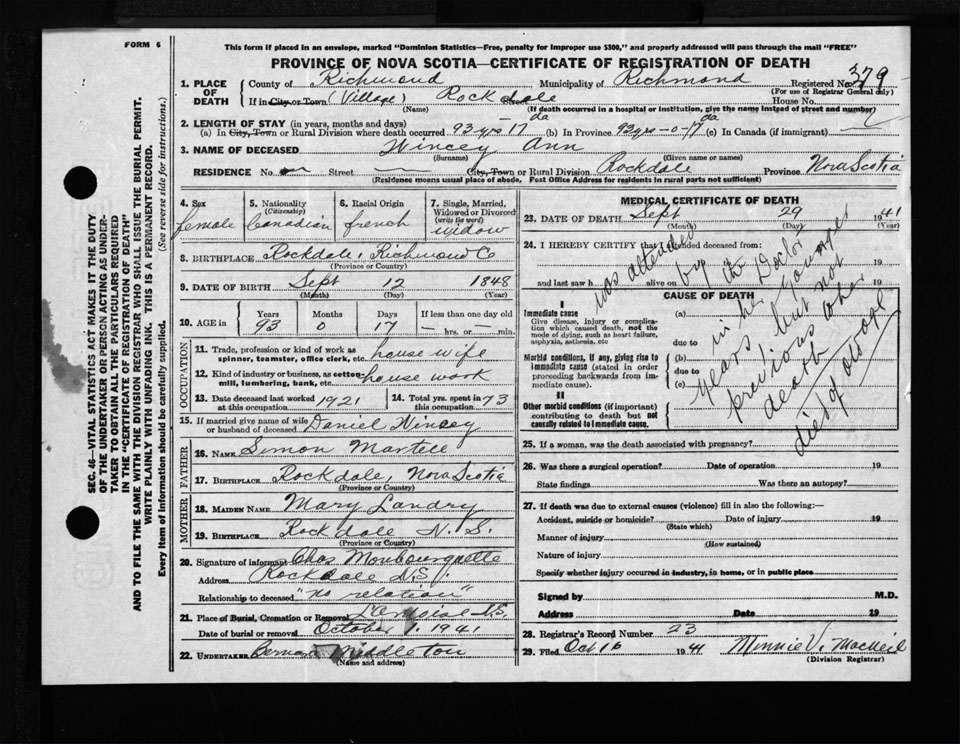 FORM 6
This form if placed in an envelope, marked "Dominion Statistics—Free, penalty for improper use $300," and properly addressed will pass through the mail "FREE"
PROVINCE OF NOVA SCOTIA—CERTIFICATE OF REGISTRATION OF DEATH
1. PLACE OF DEATH County of Richmond Municipality of Richmond Registered No. 379
(For use of Registrar General only)
If in City or Town (Village) Rockdale Street House No.
(Name) (If death occurred in a hospital or institution, give the name instead of street and number)
2. LENGTH OF STAY (in years, months and days)
(a) In City, Town or Rural Division where death occurred 93 yrs 17 da (b) In Province 93 yrs-0-17 da (c) In Canada (if immigrant)
3. NAME OF DECEASED Wincey Ann
(Surname) (Given name or names)
RESIDENCE No. Street City, Town or Rural Division Rockdale Province Nova Scotia
(Residence means usual place of abode. Post Office Address for residents in rural parts not sufficient)
4. Sex female
5. Nationality (Citizenship) Canadian
6. Racial Origin french
7. Single, Married, Widowed or Divorced (write the word) widow
8. BIRTHPLACE Rockdale, Richmond Co
(Province or Country)
9. DATE OF BIRTH Sept 12 1848
(Month) (Day) (Year)
10. AGE in Years 93 Months 0 Days 17 If less than one day old — hrs. or — min.
OCCUPATION
11. Trade, profession or kind of work as spinner, teamster, office clerk, etc. house wife
12. Kind of industry or business, as cotton-mill, lumbering, bank, etc. house work
13. Date deceased last worked at this occupation 1921 14. Total yrs. spent in this occupation 73
15. If married give name of wife or husband of deceased Daniel Wincey
FATHER
16. NAME Simon Martell
17. BIRTHPLACE Rockdale, Nova Scotia
(Province or Country)
MOTHER
18. MAIDEN NAME Mary Landry
19. BIRTHPLACE Rockdale N.S.
(Province or Country)
20. Signature of informant Chas Monbourquette
Address Rockdale N.S.
Relationship to deceased "no relation"
21. Place of Burial, Cremation or Removal L'Ardoise N.S.
Date of burial or removal October 1, 1941
22. UNDERTAKER Middleton
(Name and address)
MEDICAL CERTIFICATE OF DEATH
23. DATE OF DEATH Sept 29 1941
(Month) (Day)
24. I HEREBY CERTIFY that I attended deceased from:
19
and last saw h alive on 19
CAUSE OF DEATH
I
Immediate cause
Give disease, injury or complication which caused death, not the mode of dying, such as heart failure, asphyxia, asthenia, etc
(a)
due to
Morbid conditions, if any, giving rise to immediate cause (stated in order proceeding backwards from immediate cause).
(b)
due to
(c)
II
Other morbid conditions (if important) contributing to death but not causally related to immediate cause.
was attended
by the Doctor
in her younger
years, but not
previous to her
death
died of old age
25. If a woman, was the death associated with pregnancy?
26. Was there a surgical operation? Date of operation 19
State findings Was there an autopsy?
27. If death was due to external causes (violence) fill in also the following:—
Accident, suicide or homicide? Date of injury 19
(State which)
Manner of injury
(How sustained)
Nature of injury
Specify whether injury occurred in industry, in home, or in public place
Signed by M.D.
Address Date 19
28. Registrar's Record Number 23
29. Filed Oct 16 1941 Minnie V. MacNeil
(Division Registrar)
SEC. 46—VITAL STATISTICS ACT MAKES IT THE DUTY
OF THE UNDERTAKER OR PERSON ACTING AS UNDERTAKER TO OBTAIN ALL THE PARTICULARS REQUIRED
IN THE "CERTIFICATE OF REGISTRATION OF DEATH"
AND TO FILE THE SAME WITH THE DIVISION REGISTRAR WHO SHALL ISSUE THE BURIAL PERMIT.
WRITE PLAINLY WITH UNFADING INK. THIS IS A PERMANENT RECORD.
Every item of Information should be carefully supplied. (See reverse side for instructions.)